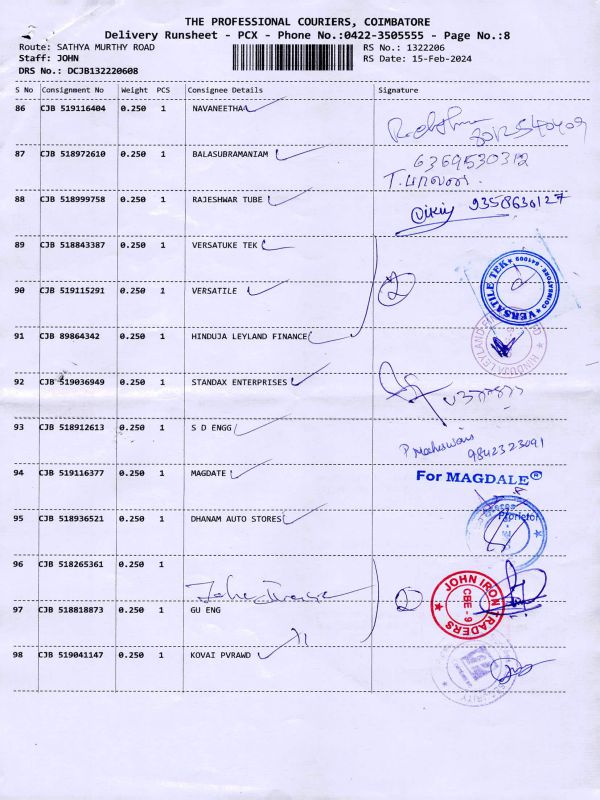 THE PROFESSIONAL COURIERS, COIMBATORE
Delivery Runsheet - PCX - Phone No.:0422-3505555 - Page No.:8
Route: SATHYA MURTHY ROAD RS No.: 1322206
Staff: JOHN RS Date: 15-Feb-2024
DRS No.: DCJB132220608
S No Consignment No Weight PCS Consignee Details Signature
86 CJB 519116404 0.250 1 NAVANEETHA
87 CJB 518972610 0.250 1 BALASUBRAMANIAM 6369530312
88 CJB 518999758 0.250 1 RAJESHWAR TUBE 9358630127
89 CJB 518843387 0.250 1 VERSATUKE TEK
90 CJB 519115291 0.250 1 VERSATILE 2 VERSATILE TEK COIMBATORE - 641009
91 CJB 89864342 0.250 1 HINDUJA LEYLAND FINANCE HINDUJA LEYLAND
92 CJB 519036949 0.250 1 STANDAX ENTERPRISES
93 CJB 518912613 0.250 1 S D ENGG P Maheswari 9842323091
94 CJB 519116377 0.250 1 MAGDATE For MAGDALE®
95 CJB 518936521 0.250 1 DHANAM AUTO STORES Proprietor
96 CJB 518265361 0.250 1
97 CJB 518818873 0.250 1 GU ENG 2 JOHN IRON TRADERS CBE - 9
98 CJB 519041147 0.250 1 KOVAI PVRAWD SECURITY